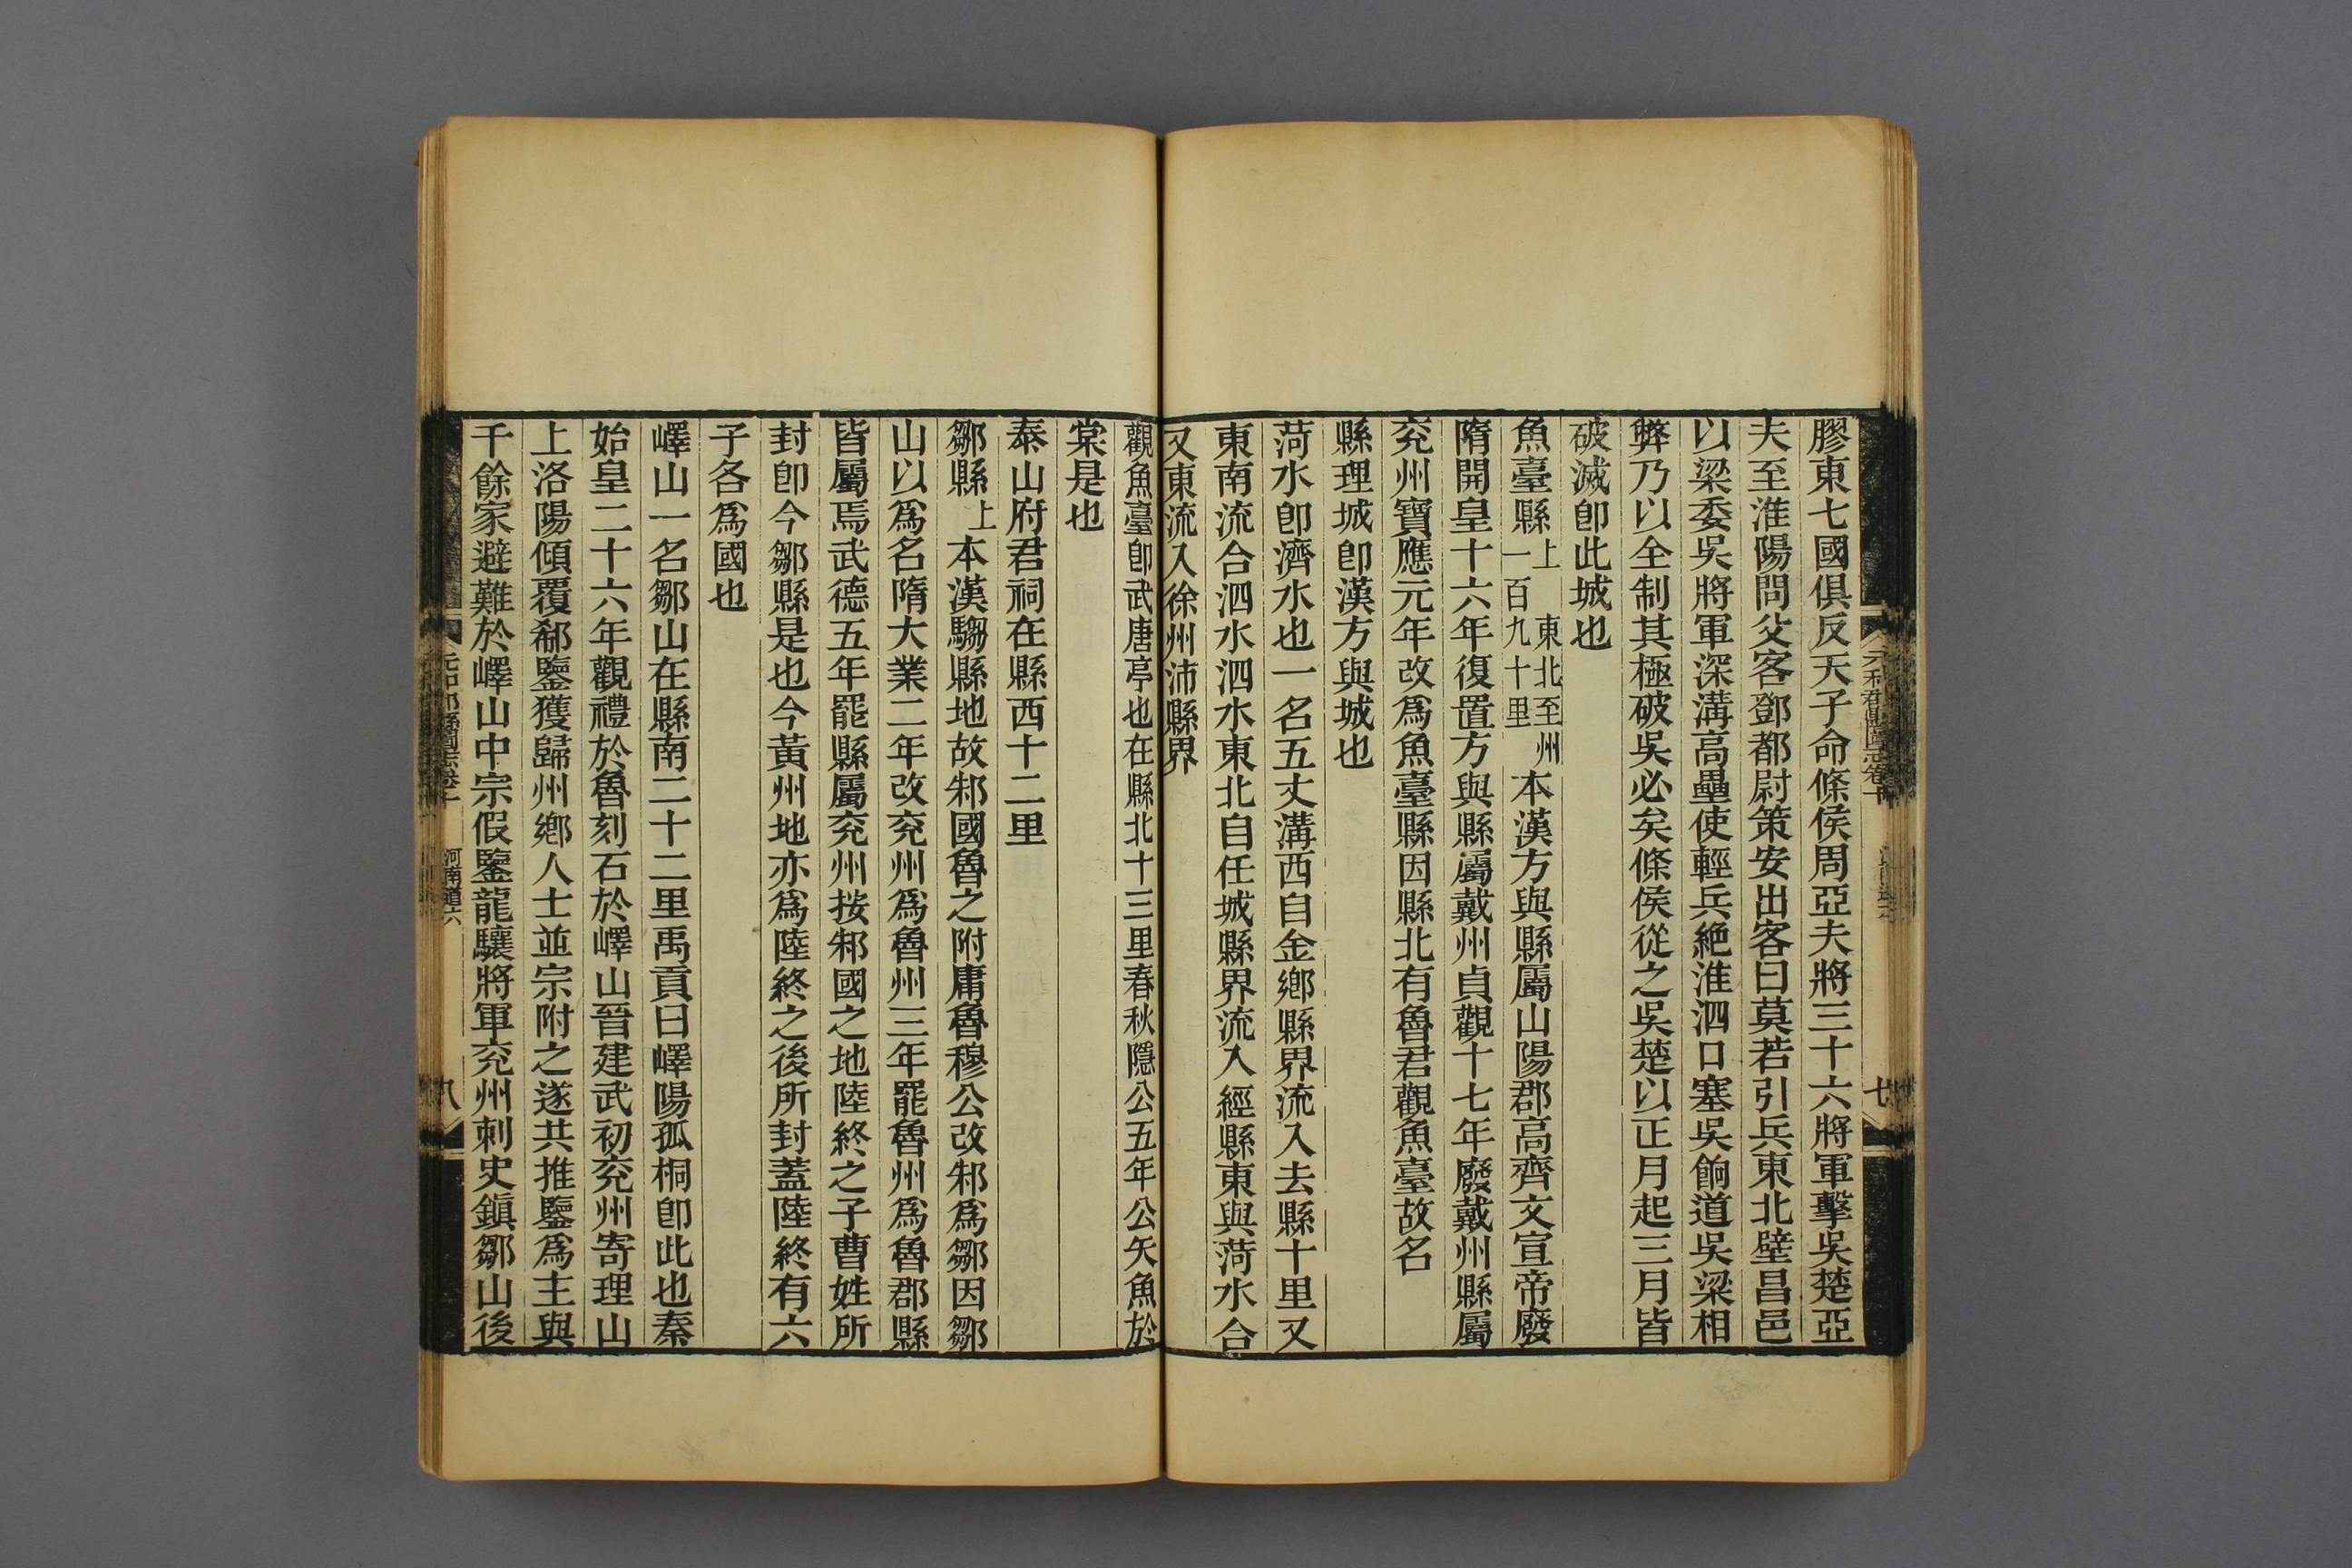 膠東七國俱反天子命條侯周亞夫將三十六將軍擊吳楚亞
夫至淮陽問父客鄧都尉策安出客曰莫若引兵東北壁昌邑
以梁委吳將軍深溝高壘使輕兵絶淮泗口塞吳餉道吳梁相
弊乃以全制其極破吳必矣條侯從之吳楚以正月起三月皆
破滅卽此城也
魚臺縣上 東北至州一百九十里 本漢方與縣屬山陽郡高齊文宣帝廢
隋開皇十六年復置方與縣屬戴州貞觀十七年廢戴州縣屬
兖州寶應元年改爲魚臺縣因縣北有魯君觀魚臺故名
縣理城卽漢方與城也
菏水卽濟水也一名五丈溝西自金鄉縣界流入去縣十里又
東南流合泗水泗水東北自任城縣界流入經縣東與菏水合
又東流入徐州沛縣界
觀魚臺卽武唐亭也在縣北十三里春秋隱公五年公矢魚於
棠是也
泰山府君祠在縣西十二里
鄒縣上 本漢騶縣地故邾國魯之附庸魯穆公改邾爲鄒因鄒
山以爲名隋大業二年改兖州爲魯州三年罷魯州爲魯郡縣
皆屬焉武德五年罷縣屬兖州按邾國之地陸終之子曹姓所
封卽今鄒縣是也今黃州地亦爲陸終之後所封蓋陸終有六
子各爲國也
嶧山一名鄒山在縣南二十二里禹貢曰嶧陽孤桐卽此也秦
始皇二十六年觀禮於魯刻石於嶧山晉建武初兖州寄理山
上洛陽傾覆郗鑒獲歸州鄉人士並宗附之遂共推鑒爲主與
千餘家避難於嶧山中宗假鑒龍驤將軍兖州刺史鎮鄒山後
元和郡縣圖志卷十
七
河南道六
八